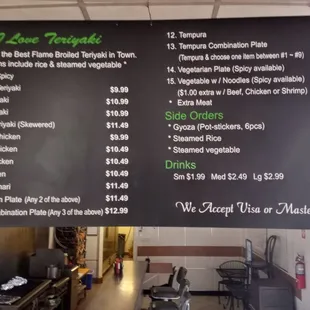 I Love Teriyaki
the Best Flame Broiled Teriyaki in Town.
ns include rice & steamed vegetable *
Spicy
Teriyaki $9.99
aki $10.99
aki $10.99
riyaki (Skewered) $11.49
Chicken $9.99
hicken $10.49
cken $10.49
en $10.49
mari $11.49
n Plate (Any 2 of the above) $11.49
mbination Plate (Any 3 of the above) $12.99
12. Tempura
13. Tempura Combination Plate
(Tempura & choose one item between #1 ~ #9)
14. Vegetarian Plate (Spicy available)
15. Vegetable w/ Noodles (Spicy available)
($1.00 extra w/ Beef, Chicken or Shrimp)
* Extra Meat
Side Orders
* Gyoza (Pot-stickers, 6pcs)
* Steamed Rice
* Steamed vegetable
Drinks
Sm $1.99 Med $2.49 Lg $2.99
We Accept Visa or Maste